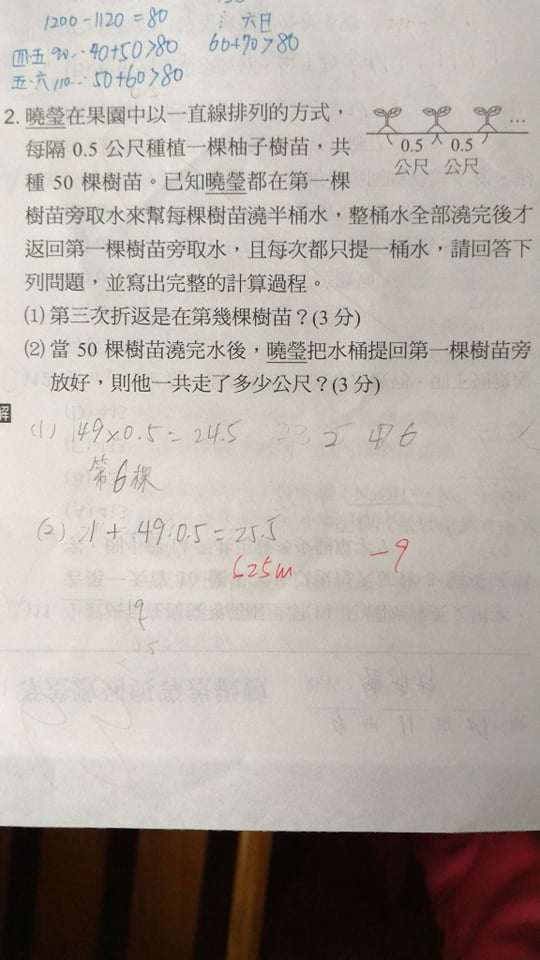 1200-1120=80
四.五 90∴40+50>80
六日
60+70>80
五.六 110∴50+60>80
2. 曉瑩在果園中以一直線排列的方式，
每隔 0.5 公尺種植一棵柚子樹苗，共
0.5 0.5 …
公尺 公尺
種 50 棵樹苗。已知曉瑩都在第一棵
樹苗旁取水來幫每棵樹苗澆半桶水，整桶水全部澆完後才
返回第一棵樹苗旁取水，且每次都只提一桶水，請回答下
列問題，並寫出完整的計算過程。
(1) 第三次折返是在第幾棵樹苗？(3 分)
(2) 當 50 棵樹苗澆完水後，曉瑩把水桶提回第一棵樹苗旁
放好，則他一共走了多少公尺？(3 分)
解
(1) 49×0.5=24.5 2 4 6
第6棵
(2) 21+49.0.5=25.5
625m -9